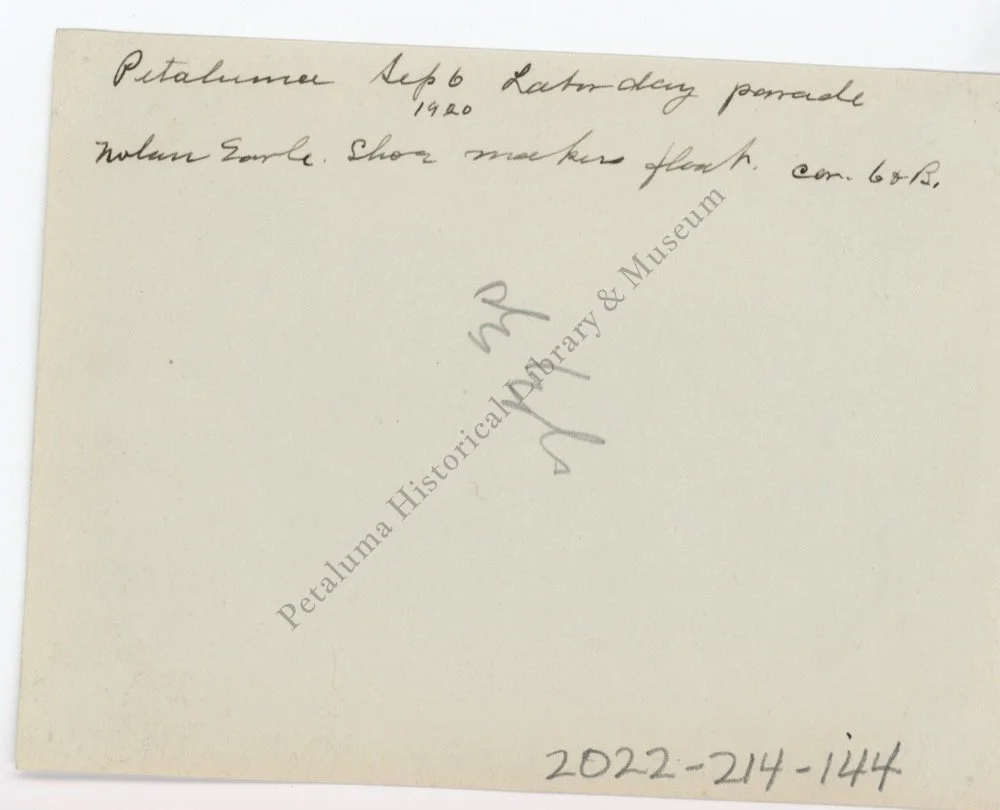 Petaluma Sep 6 Labor day parade
1920
Nolan Earle. Shoe makers float. cor. 6 & B.
Petaluma Historical Library & Museum
2022-214-144